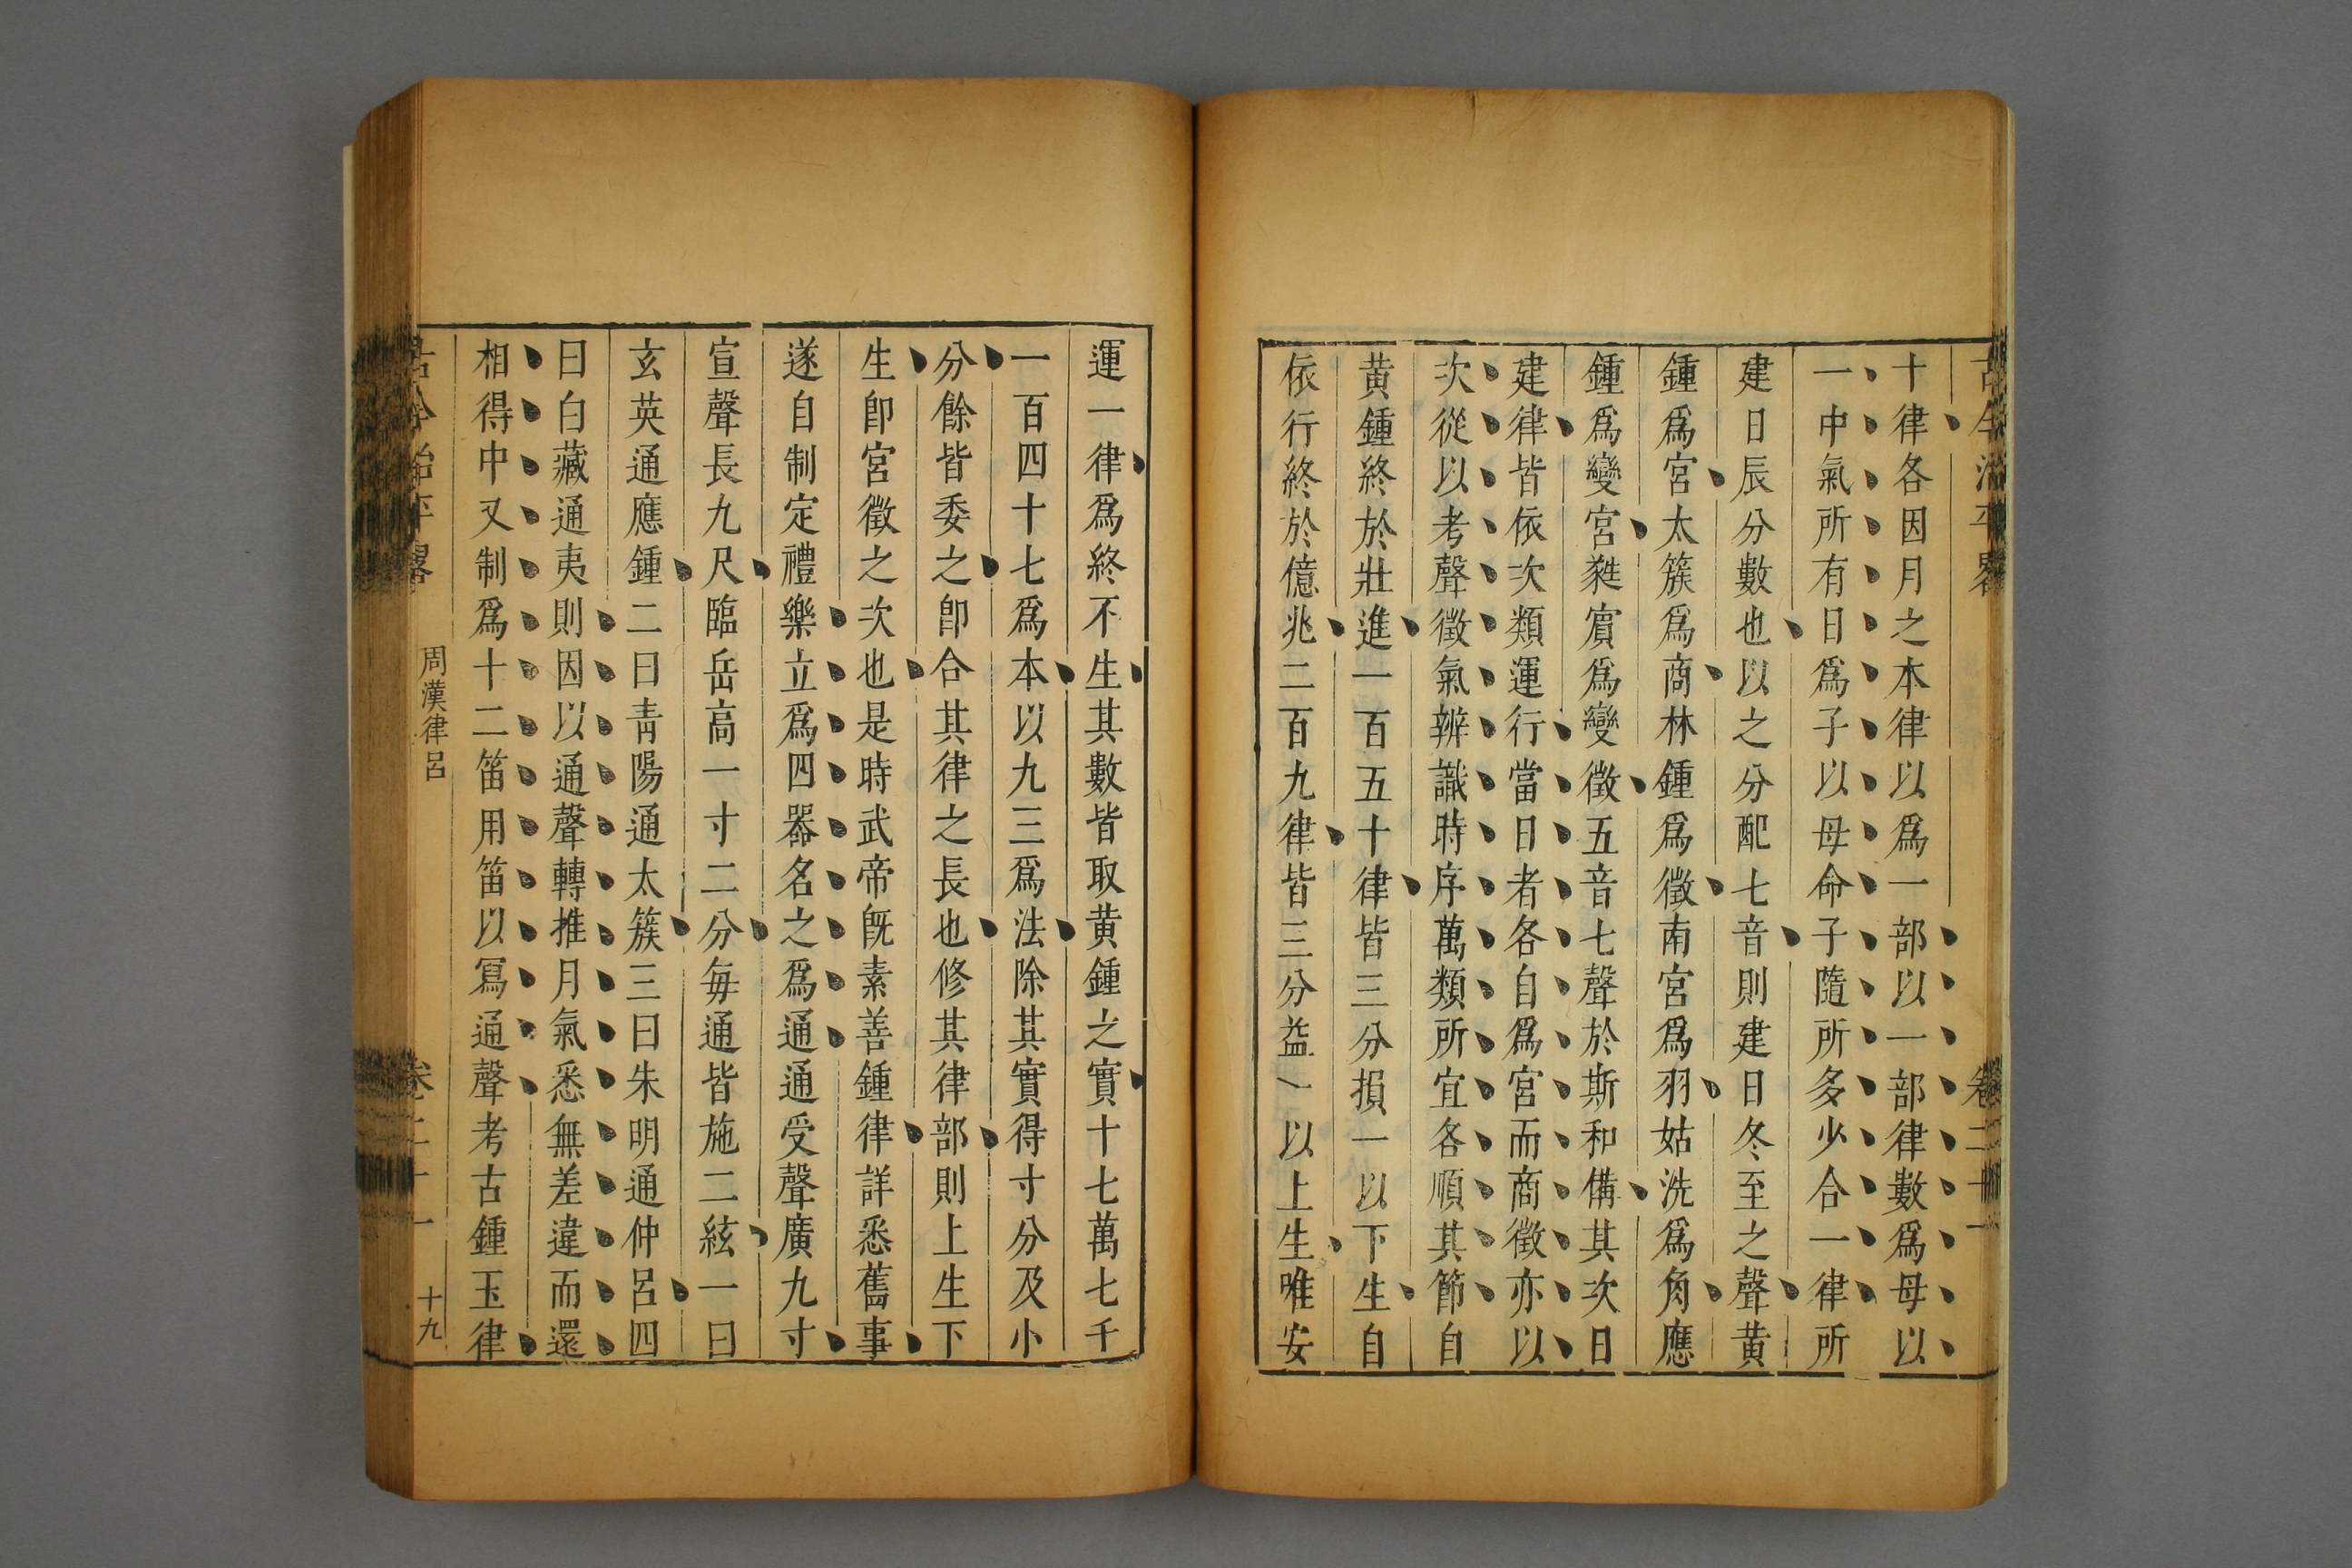 古今治平畧 卷二十一
十律各因月之本律以爲一部以一部律數爲母以
一中氣所有日爲子以母命子隨所多少合一律所
建日辰分數也以之分配七音則建日冬至之聲黄
鍾爲宮太簇爲商林鍾爲徵南宮爲羽姑洗爲角應
鍾爲變宮蕤賔爲變徵五音七聲於斯和備其次日
建律皆依次類運行當日者各自爲宮而商徵亦以
次從以考聲徵氣辨識時序萬類所宜各順其節自
黄鍾終於壯進一百五十律皆三分損一以下生自
依行終於億兆二百九律皆三分益一以上生唯安
運一律爲終不生其數皆取黄鍾之實十七萬七千
一百四十七爲本以九三爲法除其實得寸分及小
分餘皆委之卽合其律之長也修其律部則上生下
生卽宮徵之次也是時武帝旣素善鍾律詳悉舊事
遂自制定禮樂立爲四器名之爲通通受聲廣九寸
宣聲長九尺臨岳高一寸二分每通皆施二絃一曰
玄英通應鍾二曰靑陽通太簇三曰朱明通仲呂四
曰白藏通夷則因以通聲轉推月氣悉無差違而還
相得中又制爲十二笛用笛以寫通聲考古鍾玉律
古今治平畧 周漢律呂 卷二十一 十九